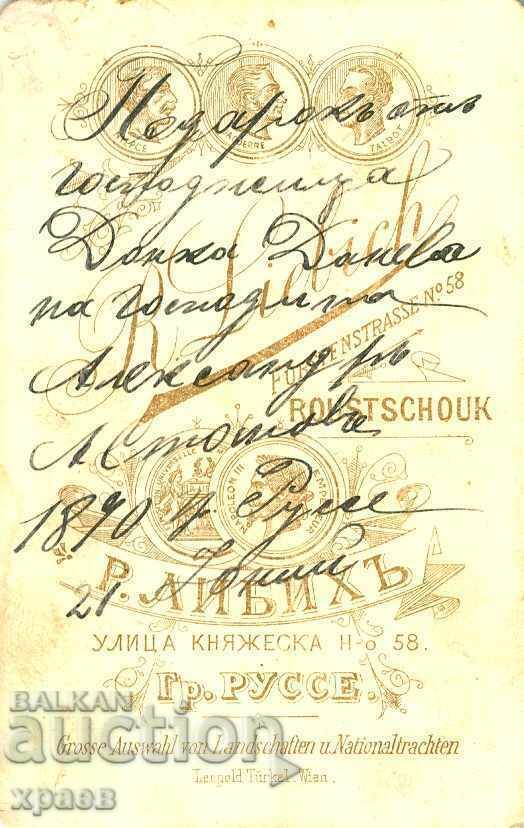 TALBOT
Подарокъ отъ
господжица
Донка Данева
на господина
Александръ
R. Libich
FÜRSTENSTRASSE No 58
ROUSTSCHOUK
NAPOLEON III EMPEREUR
1890 Руссе
21 Юний
Р. ЛИБИХЪ
УЛИЦА КНЯЖЕСКА Н-о 58.
Гр. РУССЕ.
BALKAN
auction
Grosse Auswahl von Landschaften u. Nationaltrachten
Leopold Türkel, Wien.
храев